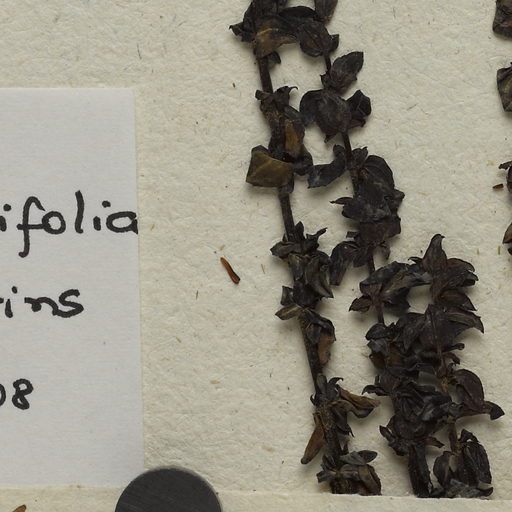 ifolia
ins
08